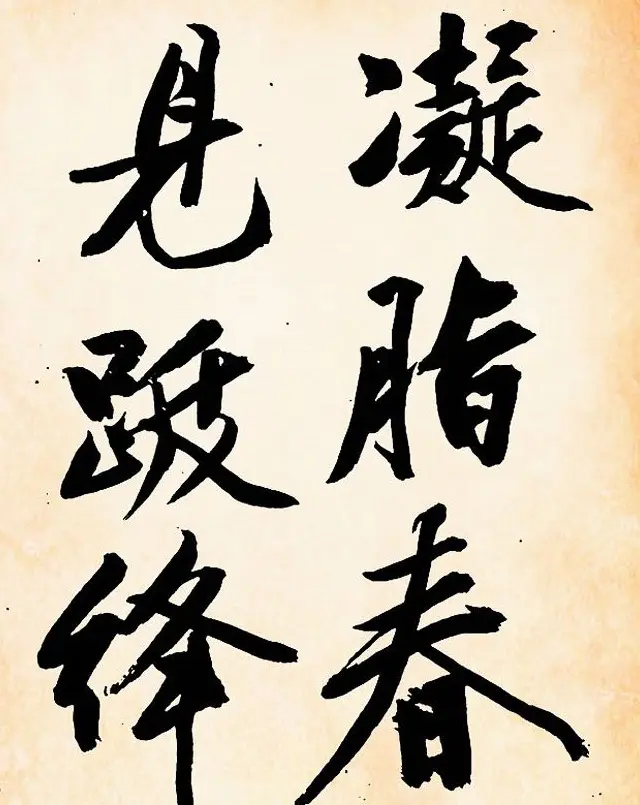 凝脂春
見跋絳